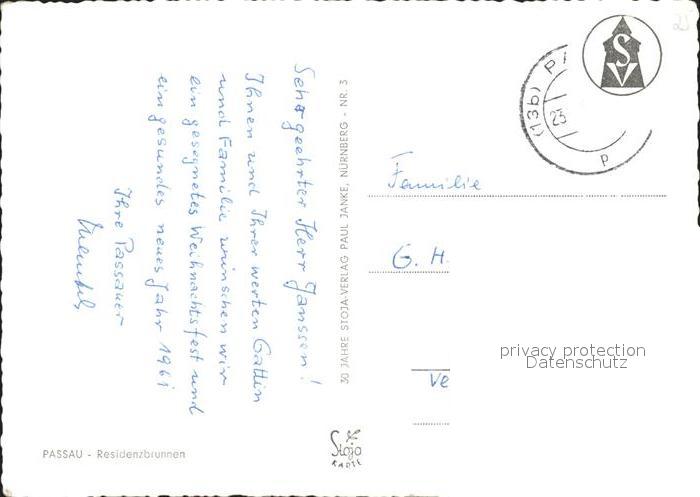 Sehr geehrter Herr Janssen!
Ihnen und Ihrer werten Gattin
und Familie wünschen wir
ein gesegnetes Weihnachtsfest und
ein gesundes neues Jahr 1961
Ihre Passauer
30 JAHRE STOJA-VERLAG PAUL JANKE, NÜRNBERG - NR. 3
S
V
(13b) P
23
P
Familie
G. H.
privacy protection
Datenschutz
Ve
Stoja
KARTE
PASSAU - Residenzbrunnen